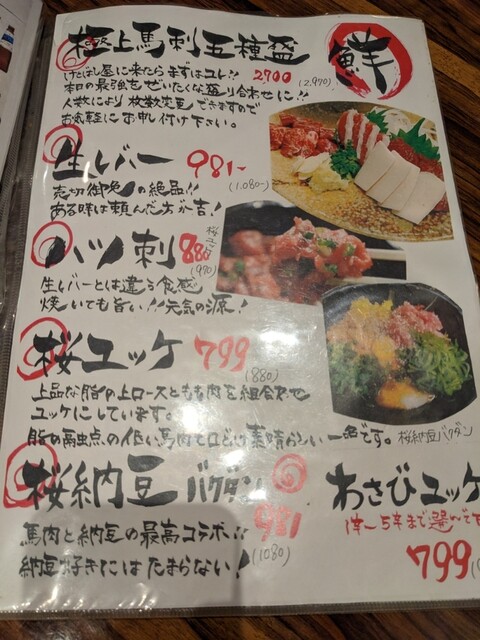 極上馬刺五種盛
けとばし屋に来たらまずはコレ!! 2700 (2.970)
本日の最強をぜいたくな盛り合わせに!!
人数により枚数変更できますので
お気軽にお申し付け下さい。
鮮
生レバー 981- (1.080-)
売切御免の絶品!!
ある時は頼んだ方が吉!
ハツ刺 880 (970)
生レバーとは違う食感
焼いても旨い!!元気の源!
桜ユッケ 799 (880)
上品な脂の上ロースともも肉を組合わせ
ユッケにしています。
脂の融点の低い馬肉で口どけ素晴らしい一品です。
桜納豆バクダン
桜納豆バクダン 981 (1080)
馬肉と納豆の最高コラボ!!
納豆好きにはたまらない!
わさびユッケ
1辛〜5辛まで選んで
799